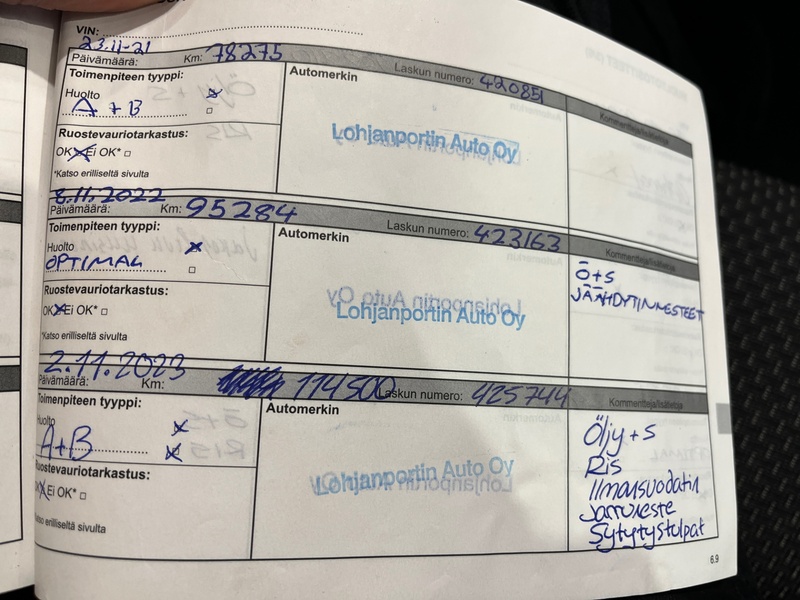 VIN:
23.11-21
Päivämäärä: Km: 78275 Laskun numero: 420851
Toimenpiteen tyyppi: Automerkin Kommentteja/lisätietoja
Huolto
A + B
Lohjanportin Auto Oy
Ruostevauriotarkastus:
OK Ei OK*
*Katso erilliseltä sivulta
8.11.2022
Päivämäärä: Km: 95284 Laskun numero: 423163
Toimenpiteen tyyppi: Automerkin Kommentteja/lisätietoja
Huolto
OPTIMAL
ö+s
JÄÄHDYTINNESTEET
Lohjanportin Auto Oy
Ruostevauriotarkastus:
OK Ei OK*
*Katso erilliseltä sivulta
2.11.2023
Päivämäärä: Km: 114500 Laskun numero: 425744
Toimenpiteen tyyppi: Automerkin Kommentteja/lisätietoja
Huolto
A+B
Öljy + s
Ris
Ilmansuodatin
Jarruneste
Sytytystulpat
Lohjanportin Auto Oy
Ruostevauriotarkastus:
Ei OK*
erilliseltä sivulta
6.9